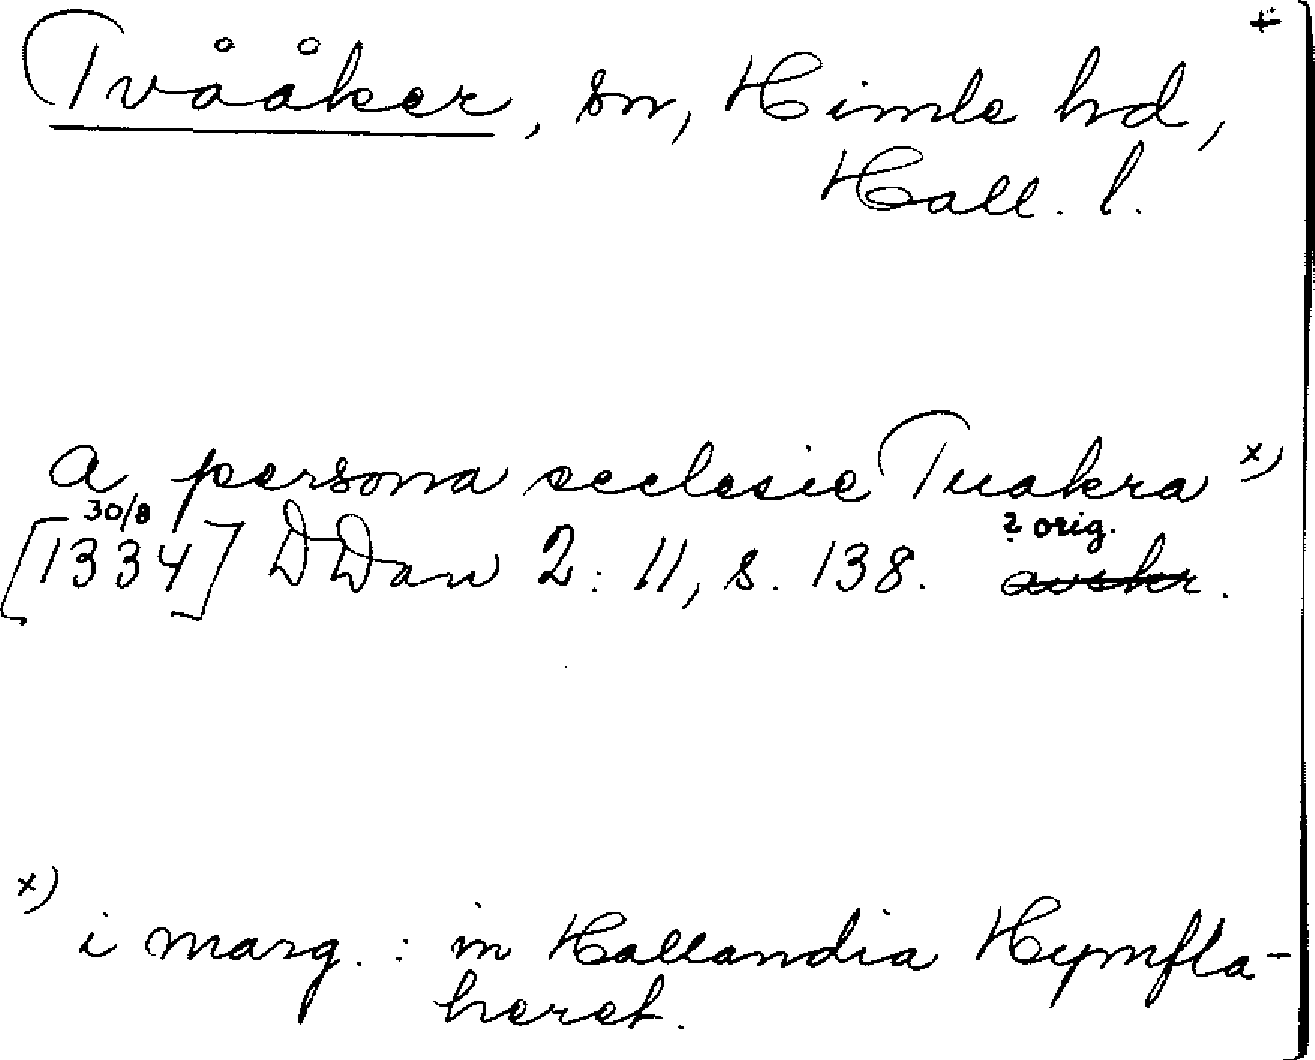 +
Tvååker, sn, Himle hd,
Hall. l.
a persona ecclesie Tuakra x)
30/8 ? orig.
[1334] DDan 2: 11, s. 138. avskr.
x)
i marg.: in Hallandia Hymfla-
heret.